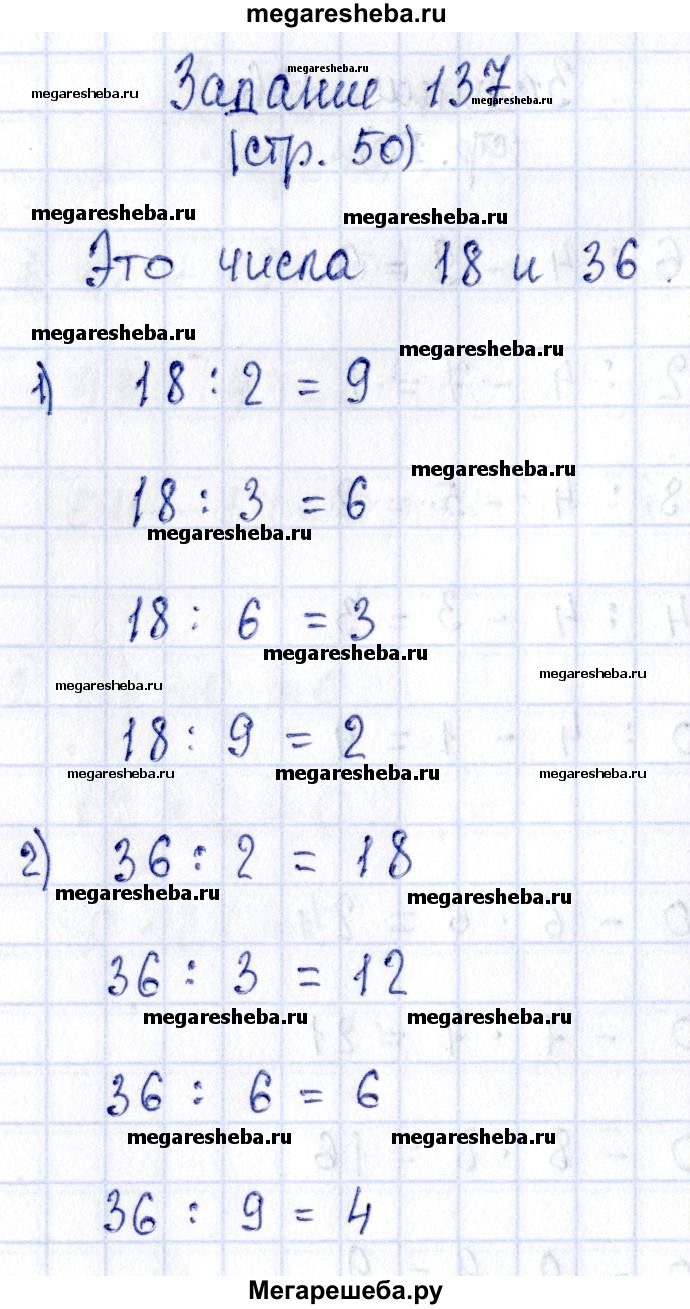 megaresheba.ru
megaresheba.ru
megaresheba.ru
Задание 137
megaresheba.ru
(стр. 50)
megaresheba.ru
megaresheba.ru
Это числа 18 и 36.
megaresheba.ru
megaresheba.ru
1) 18 : 2 = 9
megaresheba.ru
18 : 3 = 6
megaresheba.ru
18 : 6 = 3
megaresheba.ru
megaresheba.ru
megaresheba.ru
18 : 9 = 2
megaresheba.ru
megaresheba.ru
megaresheba.ru
2) 36 : 2 = 18
megaresheba.ru
megaresheba.ru
36 : 3 = 12
megaresheba.ru
megaresheba.ru
36 : 6 = 6
megaresheba.ru
megaresheba.ru
36 : 9 = 4
Мегарешеба.ру